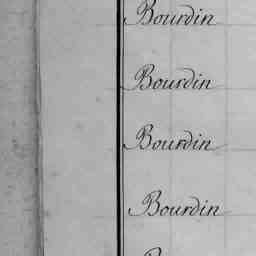 Bourdin
Bourdin
Bourdin
Bourdin